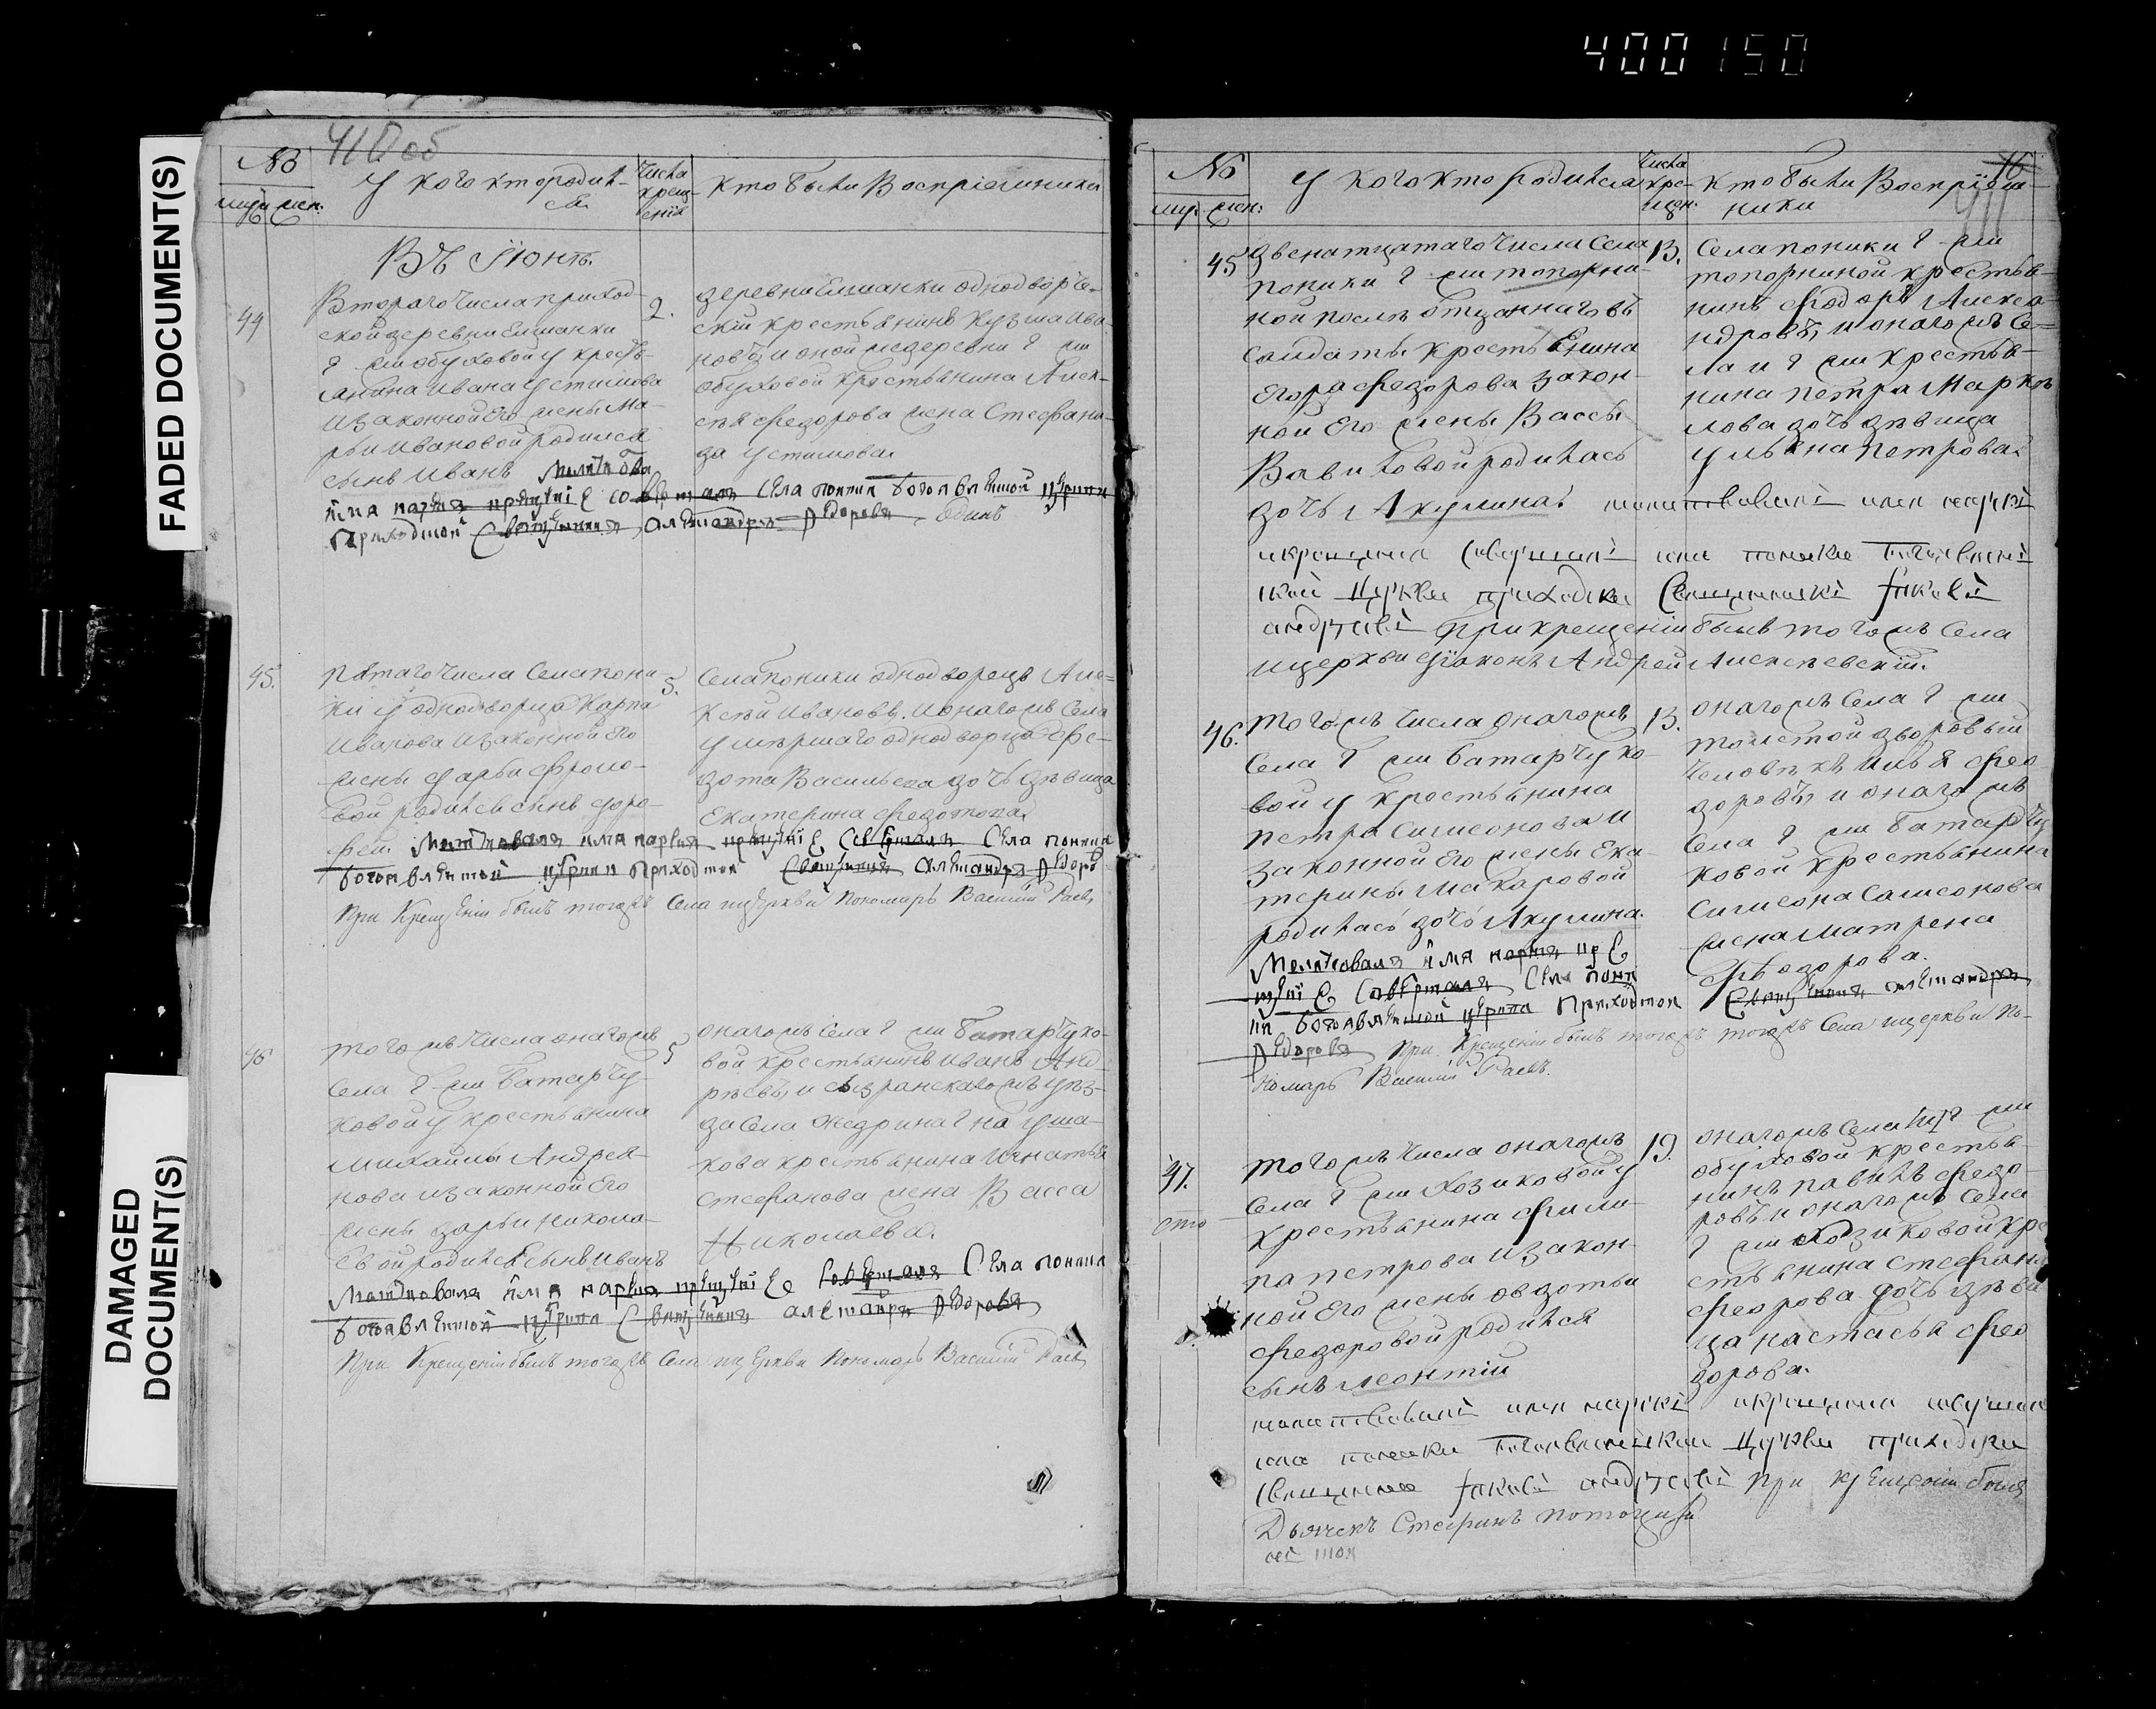 400 150
FADED DOCUMENT(S)
DAMAGED
DOCUMENT(S)
410 об
№
муж жен.
У кого кто родил-
ся
числа
крещ-
енія
кто были Воспріемники
Въ Іюнѣ.
44
Втораго числа приход-
ской деревни Елшанки
г жи Обуховой у кресть-
янина Ивана Устимова
изаконной его жены Ма-
рьи Ивановой родился
сынъ Иванъ
2.
деревни Елшанки однодворче-
скій крестьянинъ Кузма Ива-
новъ и оной же деревни г жи
Обуховой крестьянина Алек-
сѣя Федорова жена Стефани-
да Устимова
Молитвова
имя нарекъ крещеніе совершалъ Села Поники Богоявленской церкви
Приходской Священникъ Александръ Ѳедоровъ один
45.
пятаго числа Села пони
ки у однодворца Карпа
Иванова изаконной его
жены Дарьи Фроло-
вой родился сынъ Доро-
фей
5.
Села поники однодворецъ Але-
ксѣй Ивановъ. и онагожъ Села
умѣршаго однодворца Фе-
дота Васильева дочь дѣвица
Екатерина Федотова
Молитвовалъ имя нарекъ крещеніе Совершалъ Села Поники
Богоявленской церкви Приходской Священникъ Александръ Ѳедоро
При Крещеніи былъ тогожъ Села церкви Пономарь Василій Раевъ
46
тогожъ числа онагожъ
Села г жи Батарчу-
ковой у крестьянина
Михайлы Андрея-
нова изаконной его
жены дарьи никола-
евой родился сынъ Иванъ
5
онагожъ села г жи Батарчуко-
вой крестьянинъ Иванъ Анд-
рѣевъ, и сызранскагожъ уѣз-
да Села Жедрина г на Уша-
кова крестьянина Игнатья
Стефанова жена Васса
Николаева.
Молитвовалъ имя нарекъ крещеніе Совершалъ Села Поники
Богоявленской церкви Священникъ Александръ Ѳедоровъ
При Крещеніи былъ тогожъ Села церкви Пономарь Василій Раевъ
№
муж. жен:
У кого кто родился
числа
кре-
щен:
кто были Воспріем-
ники
16
411
45
двенатцатаго числа Села
поники г жи Топорни-
ной послѣ отданнаго въ
салдаты крестьянина
Егора Федорова закон-
ной его жены Вассы
Вавиловой родилась
дочь Акулина
13.
Села поники г жи
топорниной крестья-
нинъ Федоръ Алекса-
ндровъ, и онагожъ Се-
ла и г жи крестья-
нина петра Марке
лова дочь дѣвица
ульяна петрова
молитвовалъ имя нарекъ
икрещеніе Совершалъ села поники Богоявлен
ской Церкви приходски Священникъ Іаковъ
андреевъ При крещеніи былъ тогожъ Села
ицеркви діаконъ Андрей Алексѣевскій.
46.
Тогожъ числа онагожъ
Села г жи Батарчуко-
вой у крестьянина
петра Симеонова и
законной его жены Ека-
терины Макаровой
родилась дочь Акулина.
13.
онагожъ Села г жи
толстой дворовый
человѣкъ Илья Фео-
доровъ, и онагожъ
Села г жи Батарчу
ковой крестьянина
Симеона Самсонова
жена Матрена
Ѳѣодорова.
Молитвовалъ имя нарекъ кре
щеніе Совершалъ Села Пони
ки Богоявленской церкви Приходской Священникъ Александръ
Ѳедоровъ При Крещеніи былъ тогожъ тогожъ Села ицеркви По-
номарь Василій Раевъ.
47.
сто
тогожъ числа онагожъ
Села г жи Хозиковой у
крестьянина Фили-
па петрова изакон-
ной его жены овдотьи
Федоровой родился
сынъ Леонтій
19.
онагожъ Села г жи
обуховой крестья
нинъ павилъ Федо-
ровъ и онагожъ Села
г жи Хозиковой кре
стьянина Стефана
Феорова дочь дѣви
ца настасья Фео
дорова.
молитвовалъ имя нарекъ икрещеніе совершал
села поники Богоявленской Церкви приходски
Священник Іаковъ андреевъ При крещеніи былъ
Дьячекъ Стефанъ